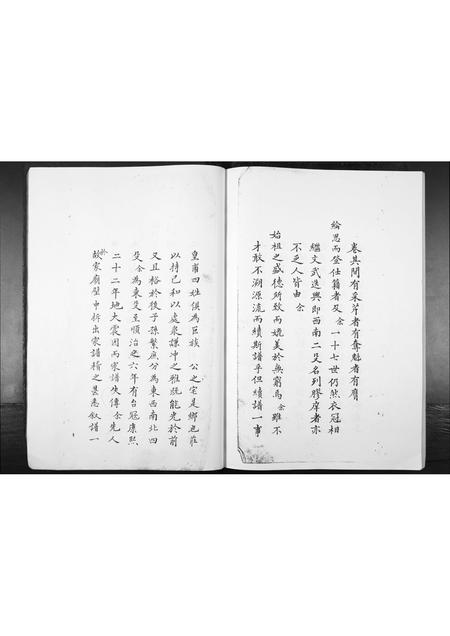 皇甫四姓俱為巨族　公之宅是鄉也莊
以持己和以處衆謙冲之雅既能光於前
又且裕於後子孫繁庶分為東西南北四
旻余為東旻至順治之六年有台冠康熙
二十二年地大震因而家譜失傳余先人
於故家廟壁中拆出家譜稽之甚悉叙譜一
卷其間有采芹者有奪魁者有膺
綸恩而登仕籍者及余一十七世仍然衣冠相
繼文武迭興即西南二旻名列膠庠者亦
不乏人皆由　余
始祖之盛德所致而媲美於無窮焉余雖不
才敢不溯源流而續斯譜乎但續譜一事